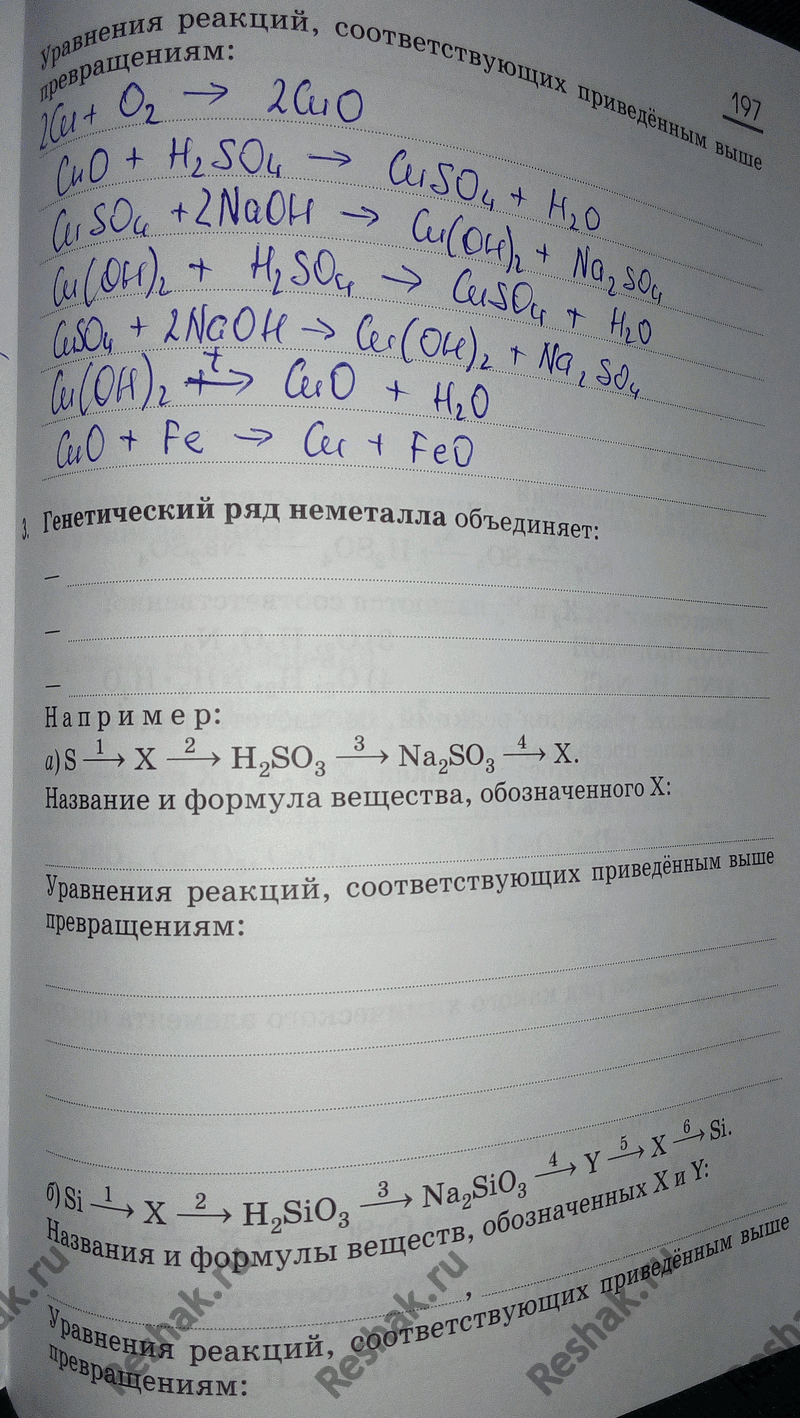 197
Уравнения реакций, соответствующих приведённым выше
превращениям:
2Cu + O₂ → 2CuO
CuO + H₂SO₄ → CuSO₄ + H₂O
CuSO₄ + 2NaOH → Cu(OH)₂ + Na₂SO₄
Cu(OH)₂ + H₂SO₄ → CuSO₄ + H₂O
CuSO₄ + 2NaOH → Cu(OH)₂ + Na₂SO₄
Cu(OH)₂ t→ CuO + H₂O
CuO + Fe → Cu + FeO
3. Генетический ряд неметалла объединяет:
–
–
–
Например:
а) S 1→ X 2→ H₂SO₃ 3→ Na₂SO₃ 4→ X.
Название и формула вещества, обозначенного X:
Уравнения реакций, соответствующих приведённым выше
превращениям:
б) Si 1→ X 2→ H₂SiO₃ 3→ Na₂SiO₃ 4→ Y 5→ X 6→ Si.
Названия и формулы веществ, обозначенных X и Y:
,
Уравнения реакций, соответствующих приведённым выше
превращениям:
Reshak.ru
Reshak.ru
Reshak.ru